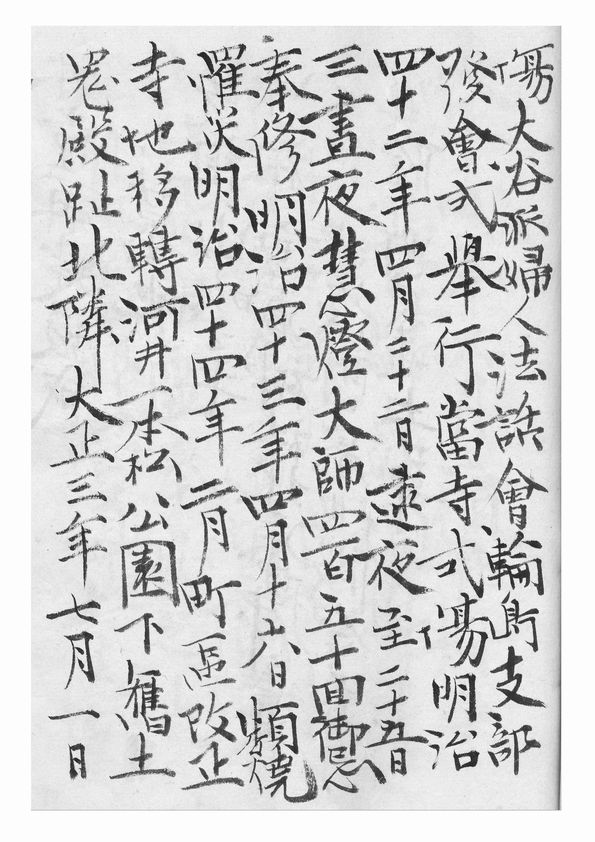 場大谷派婦人法話會輪島支部
發會式舉行當寺式場明治
四十二年四月二十二日逮夜至二十五日
三晝夜慧燈大師四百五十回御忌
奉修明治四十三年四月十六日類燒
罹災明治四十四年二月町區改正
寺地移轉河井一本松公園下舊土
殿趾北隣大正三年七月一日